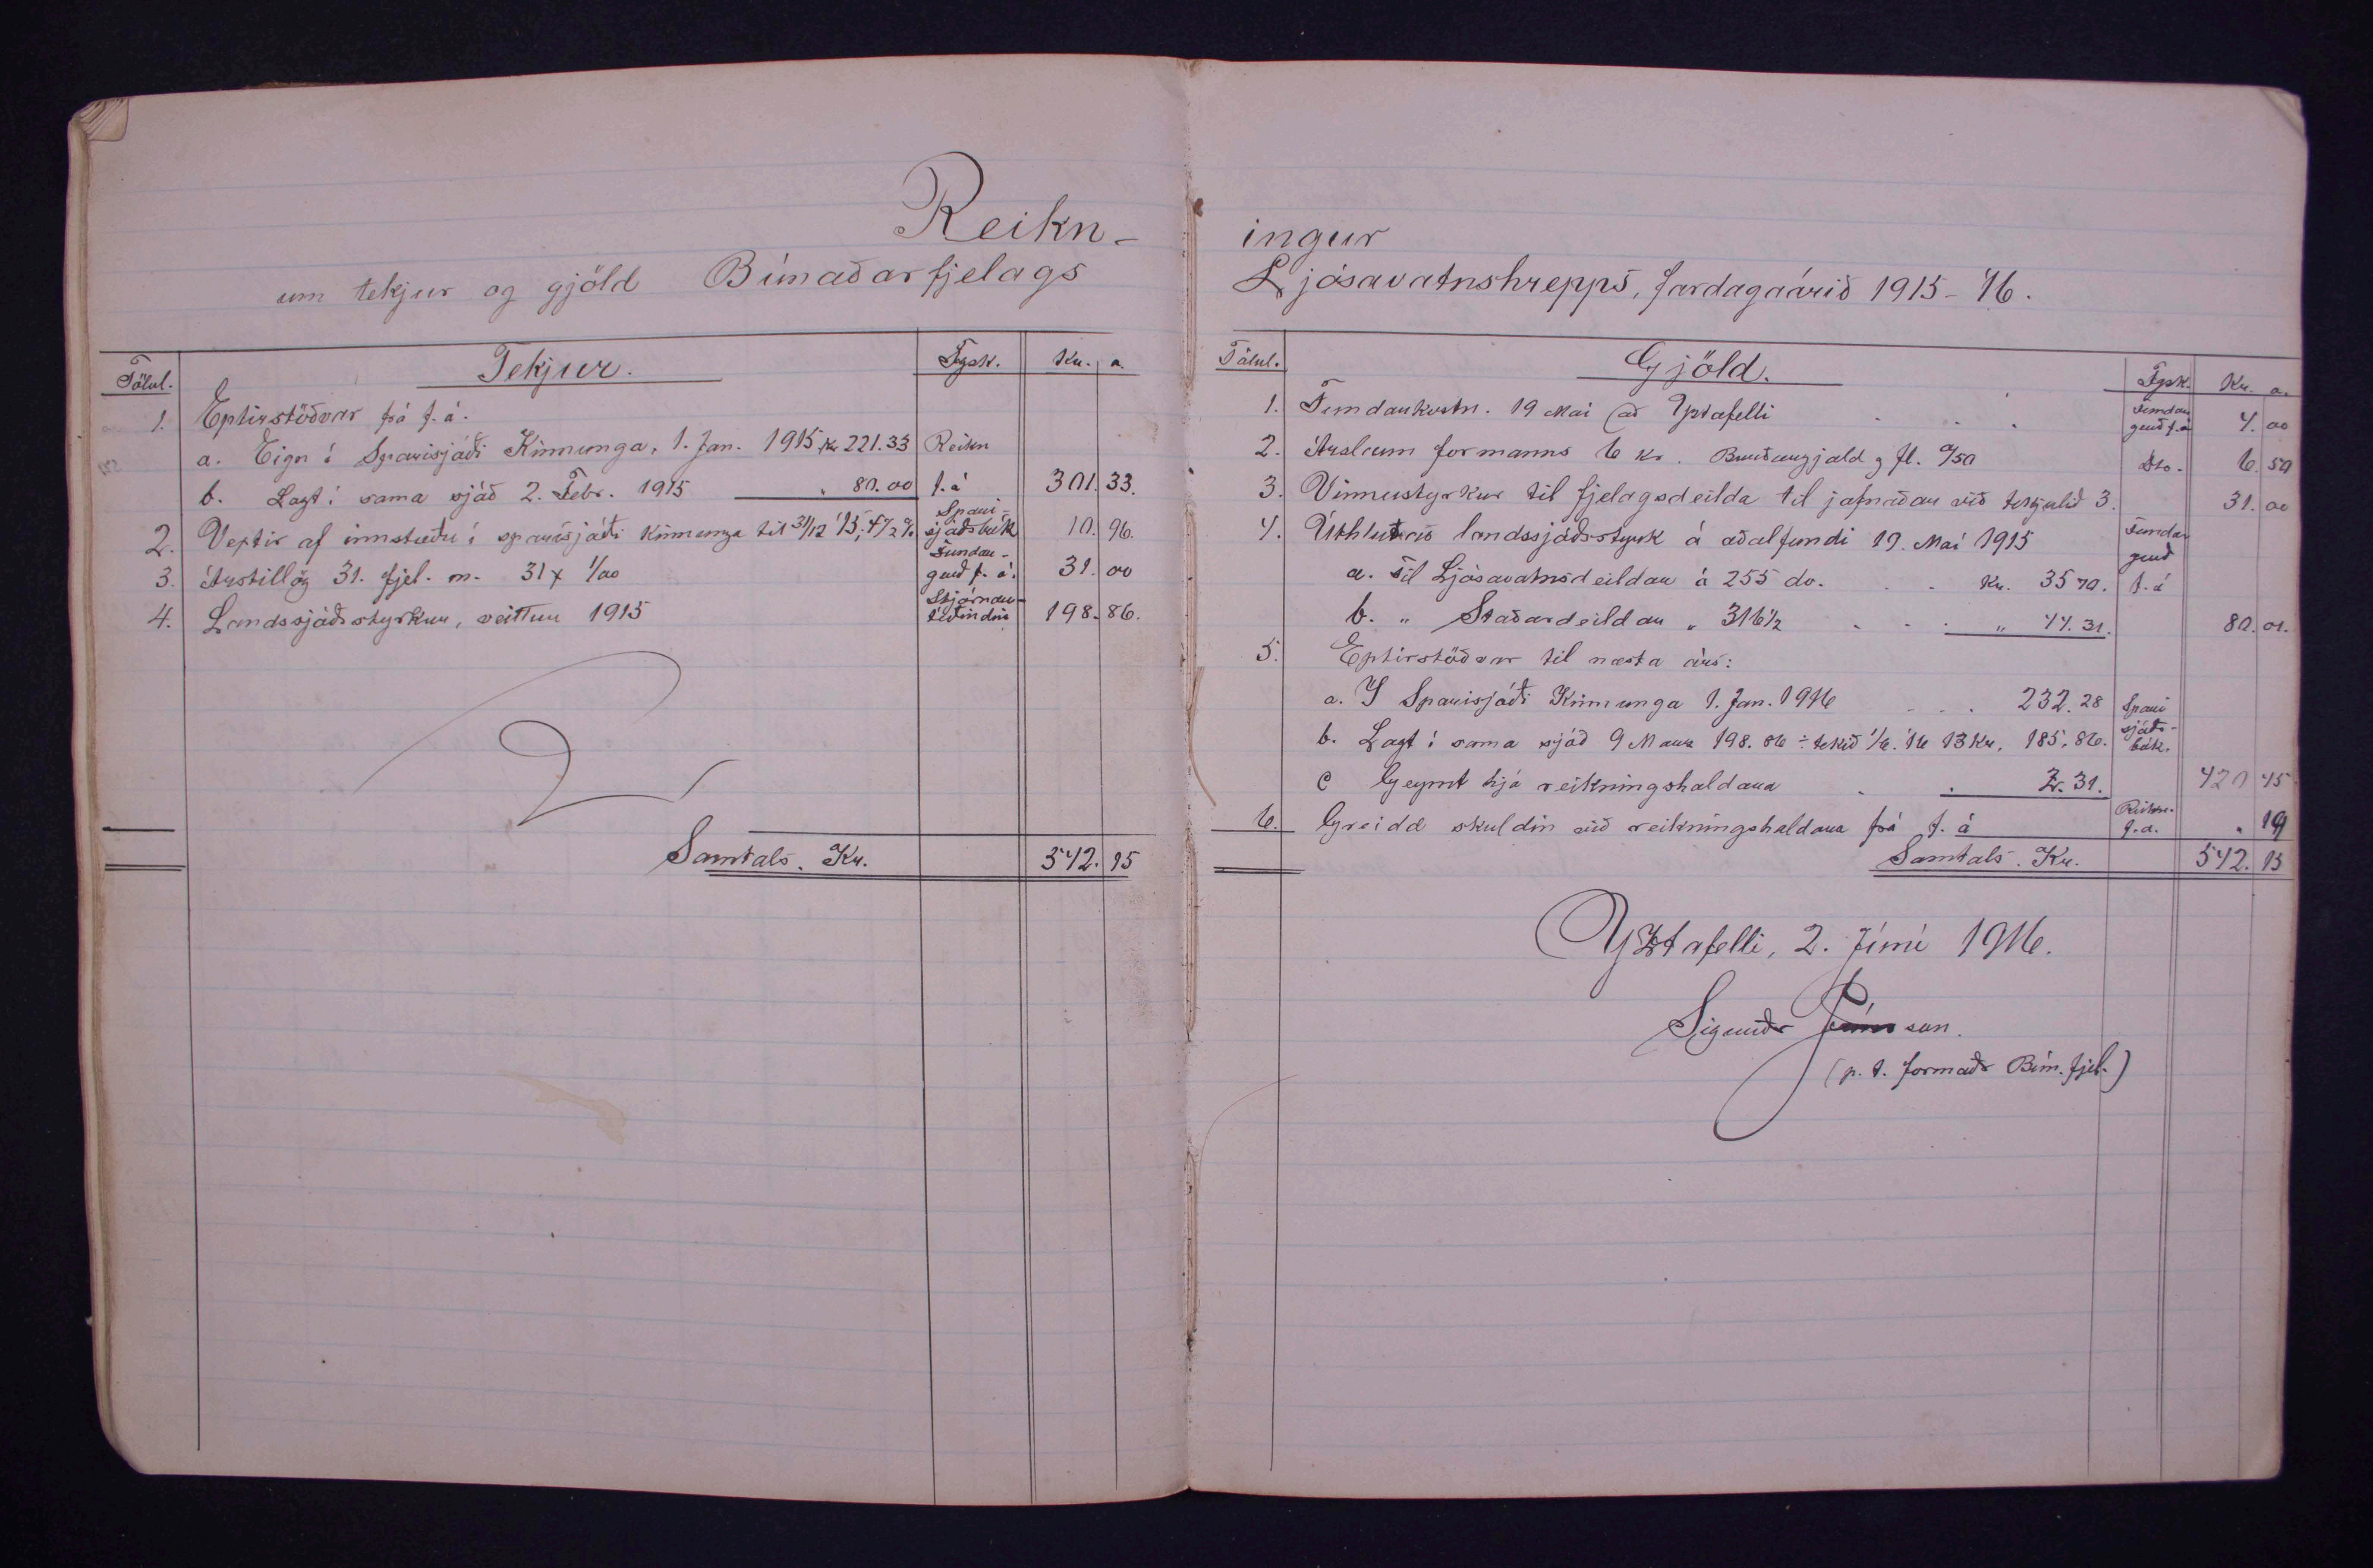 Reikn-
um tekjur og gjöld Búnaðarfjelags
Tölul. Tekjur. Fgsk. Kr. a.
1. Eptirstöðvar frá f. á.
a. Eign í Sparisjóði Kinnunga, 1. Jan. 1915 kr 221.33 Reikn
b. Lagt í sama sjóð 2. Febr. 1915 " 80.00 f. á 301. 33.
2. Vextir af innstæðu í sparisjóði Kinnunga til 31/12 '15, 4 1/2 % Sparisjóðsbók 10. 96.
3. Árstillög 31. fjel. m. 31 x 1/00 Fundargerð f. á. 31. 00
4. Landssjóðsstyrkur, veittur 1915 Stjórnartíðindin 198. 86.
Samtals. Kr. 542. 15
ingur
Ljósavatnshrepps, fardagaárið 1915-'16.
Tölul. Gjöld. Fgsk. Kr. a.
1. Fundarkostn. 19 Mai (að Yztafelli Fundargerð f. á 4. 00
2. Árslaun formanns 6 kr. Burðargjald og fl. 0/50 Dto. 6. 50
3. Vinnustyrkur til fjelagsdeilda til jafnaðar við tekjulið 3. 31. 00
4. Úthlutað landssjóðsstyrk á aðalfundi 19. Mai 1915 Fundargerð
a. Til Ljósavatnsdeildar á 255 dv. Kr. 35 70. f. á
b. " Staðardeildar " 316 1/2 " 44. 31. 80. 01.
5. Eptirstöðvar til næsta árs:
a. Í Sparisjóði Kinnunga 1. Jan. 1916 232. 28 Sparisjóðs-
b. Lagt í sama sjóð 9 Mars 198. 86 ÷ tekið 1/6. '16 13 Kr. 185. 86. bók.
c Geymt hjá reikningshaldara 2. 31. 420 45
6. Greidd skuldin við reikningshaldara frá f. á Reikn. f. á. " 19
Samtals. Kr. 542. 15
Yztafelli, 2. Júní 1916.
Sigurðr Jónsson.
(p. t. formaðr Bún. fjel.)